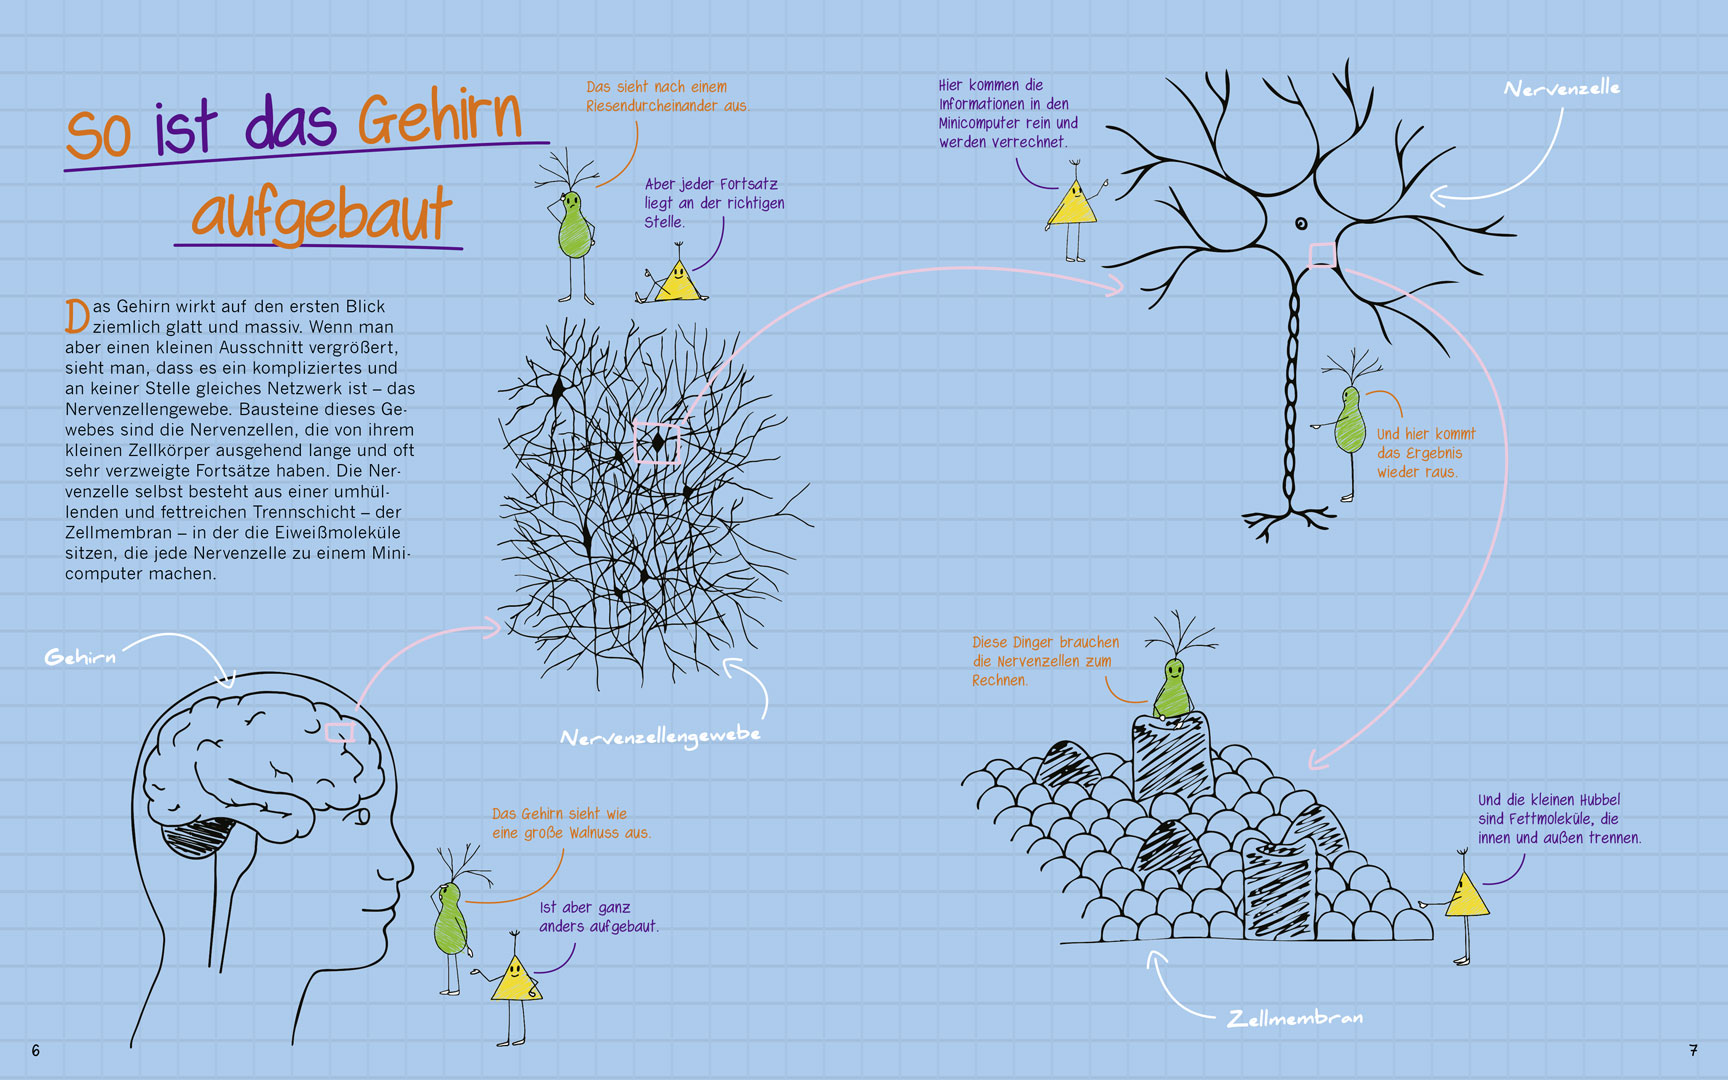 So ist das Gehirn
aufgebaut
Das Gehirn wirkt auf den ersten Blick
ziemlich glatt und massiv. Wenn man
aber einen kleinen Ausschnitt vergrößert,
sieht man, dass es ein kompliziertes und
an keiner Stelle gleiches Netzwerk ist – das
Nervenzellengewebe. Bausteine dieses Ge-
webes sind die Nervenzellen, die von ihrem
kleinen Zellkörper ausgehend lange und oft
sehr verzweigte Fortsätze haben. Die Ner-
venzelle selbst besteht aus einer umhül-
lenden und fettreichen Trennschicht – der
Zellmembran – in der die Eiweißmoleküle
sitzen, die jede Nervenzelle zu einem Mini-
computer machen.
Das sieht nach einem
Riesendurcheinander aus.
Aber jeder Fortsatz
liegt an der richtigen
Stelle.
Gehirn
Nervenzellengewebe
Das Gehirn sieht wie
eine große Walnuss aus.
Ist aber ganz
anders aufgebaut.
6
Hier kommen die
Informationen in den
Minicomputer rein und
werden verrechnet.
Nervenzelle
Und hier kommt
das Ergebnis
wieder raus.
Diese Dinger brauchen
die Nervenzellen zum
Rechnen.
Und die kleinen Hubbel
sind Fettmoleküle, die
innen und außen trennen.
Zellmembran
7